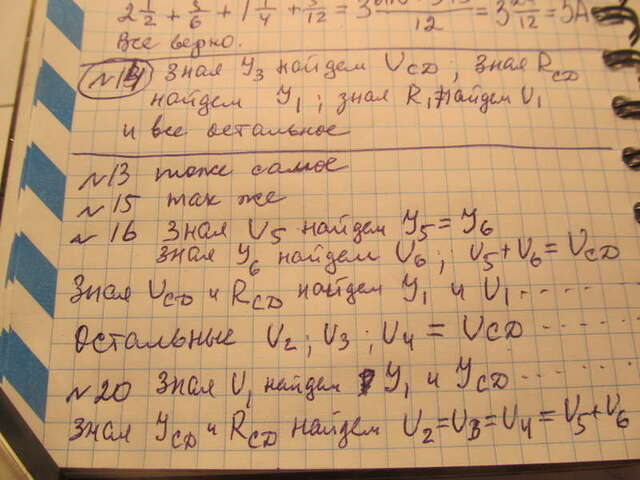 2 1/2 + 5/6 + 1 1/4 + 5/12 = 3 = 3 24/12 = 5А
Все верно.
№14 Зная У3 найдем UCD ; зная RCD
найдем У1 ; зная R1 найдем U1
и все остальное
№13 тоже самое
№15 так же
№16 Зная U5 найдем У5 = У6
Зная У6 найдем U6 ; U5 + U6 = UCD
Зная UCD и RCD найдем У1 и U1 . . . . .
Остальные U2 ; U3 ; U4 = UCD . . . . .
№20 Зная U1 найдем У1 и УCD . . . . .
Зная УCD и RCD найдем U2 = U3 = U4 = U5 + U6